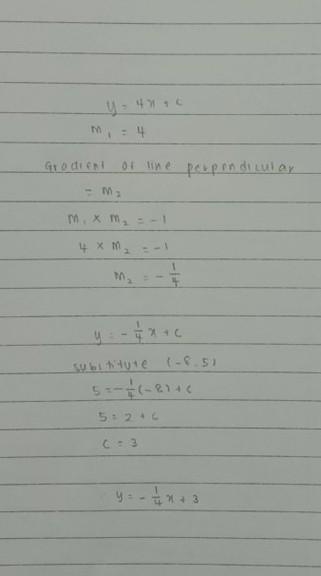 y = 4x + c
m₁ = 4
Gradient of line perpendicular
= m₂
m₁ × m₂ = -1
4 × m₂ = -1
m₂ = - 1/4
y = - 1/4 x + c
substitute (-8, 5)
5 = - 1/4 (-8) + c
5 = 2 + c
c = 3
y = - 1/4 x + 3